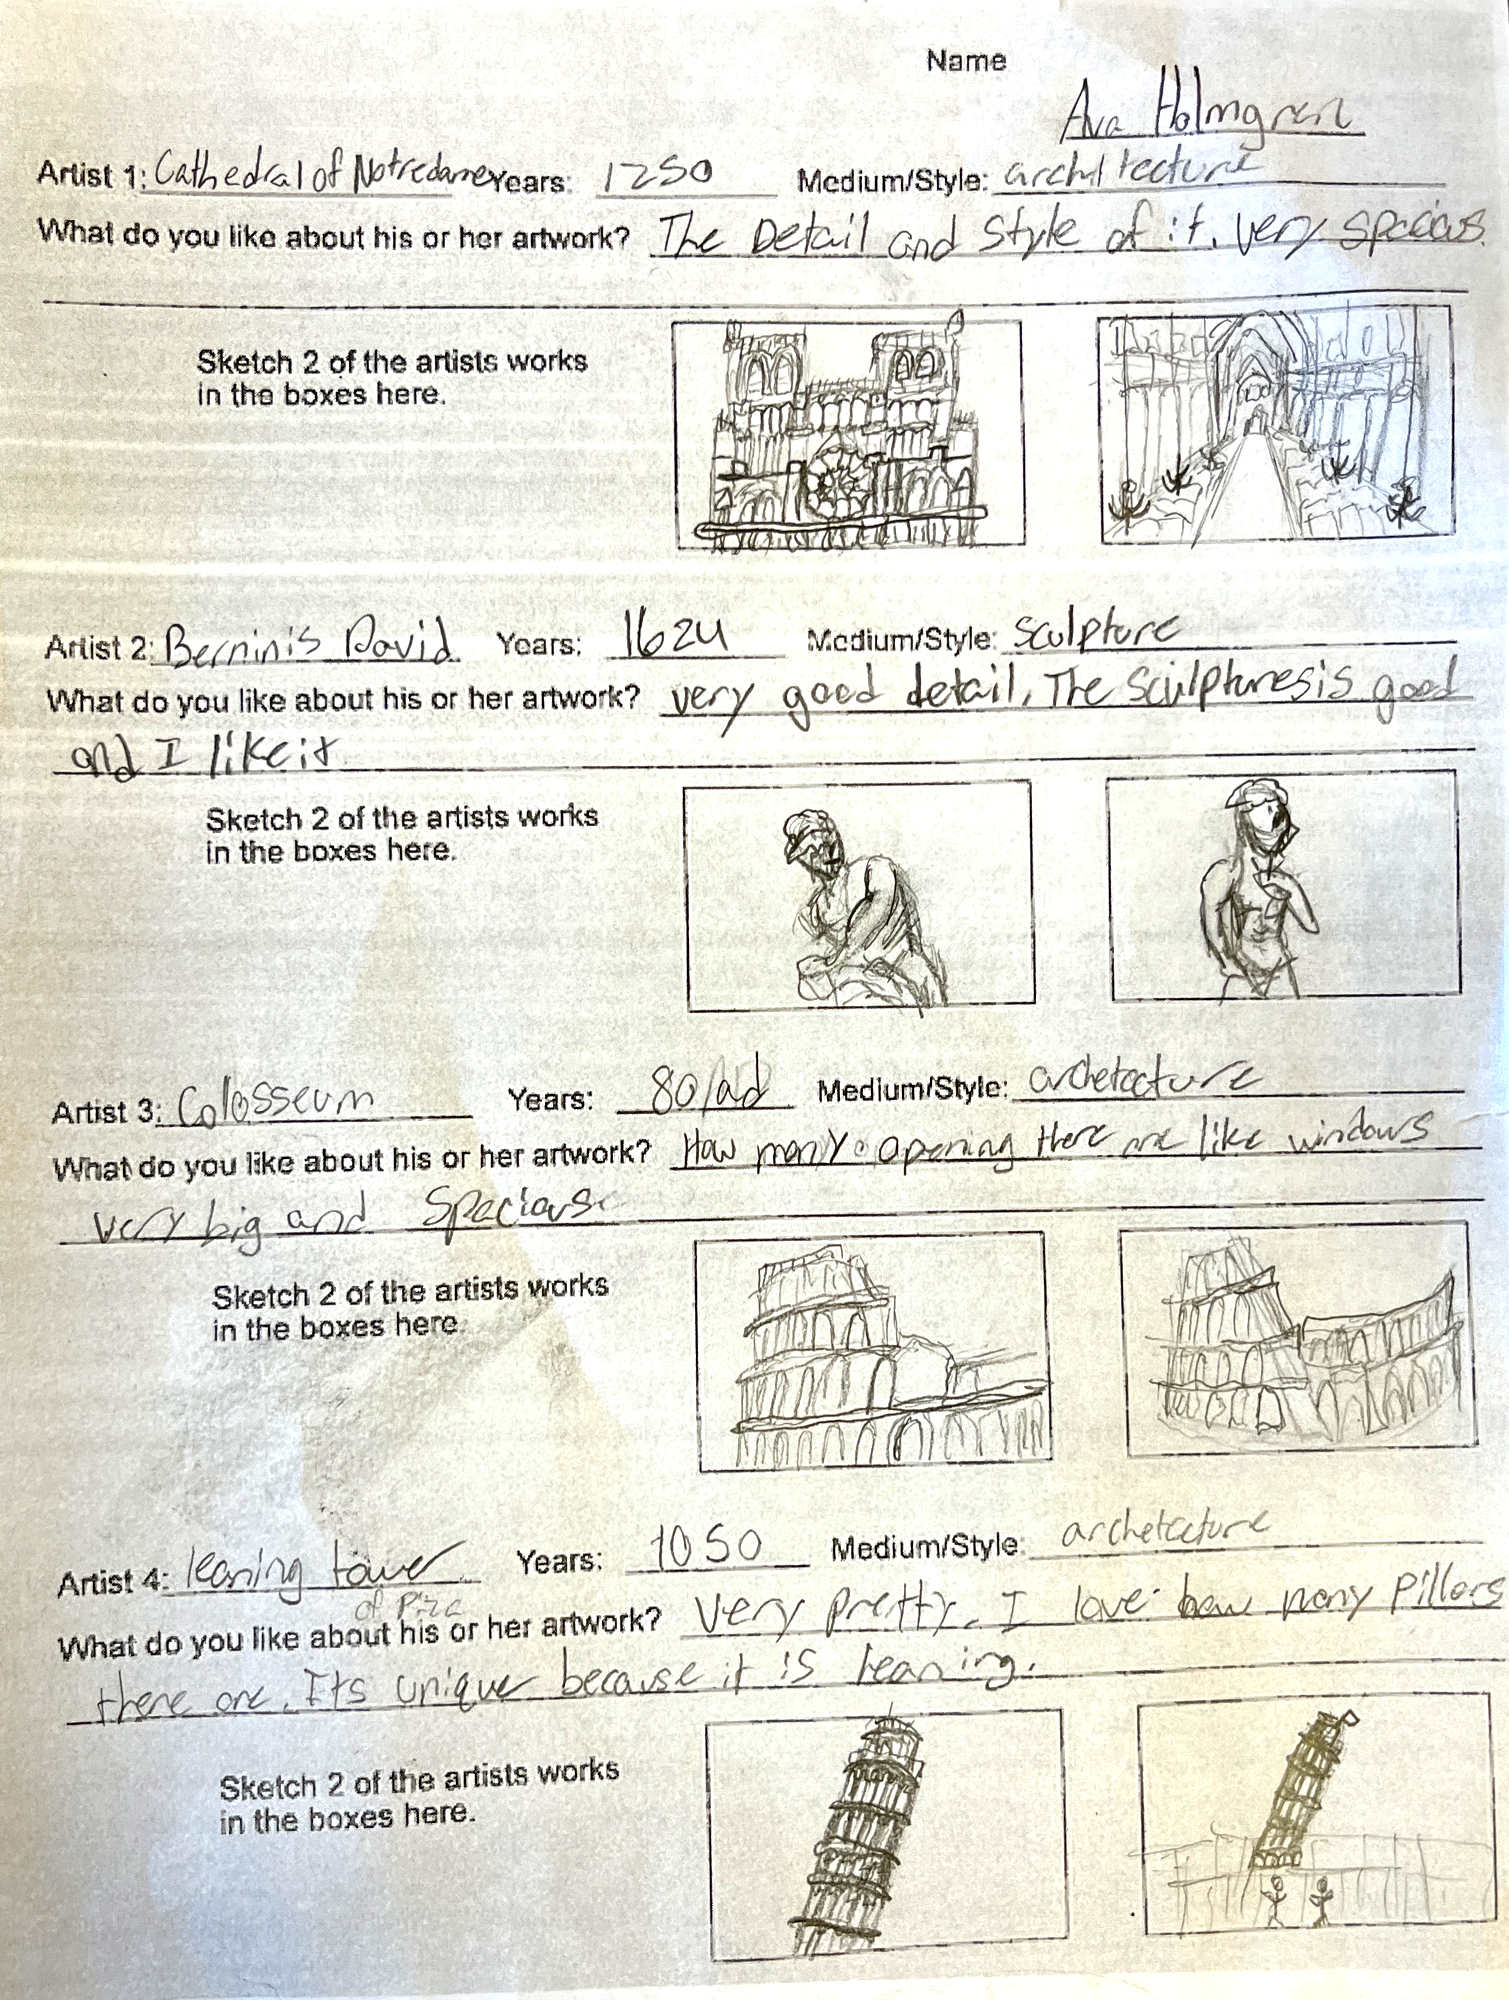 Name
Ava Holmgren
Artist 1: Cathedral of Notredame Years: 1250 Medium/Style: architecture
What do you like about his or her artwork? The Detail and Style of it. very spacious.
Sketch 2 of the artists works
in the boxes here.
Artist 2: Berninis David Years: 1624 Medium/Style: sculpture
What do you like about his or her artwork? very good detail. The sculptures is good
and I like it
Sketch 2 of the artists works
in the boxes here.
Artist 3: Colosseum Years: 80/ad Medium/Style: archetecture
What do you like about his or her artwork? How many opening there are like windows
very big and Spacious.
Sketch 2 of the artists works
in the boxes here.
Artist 4: leaning tower Years: 1050 Medium/Style: archetecture
of Piza
What do you like about his or her artwork? Very pretty. I love how many Pillars
there are. Its unique because it is leaning.
Sketch 2 of the artists works
in the boxes here.